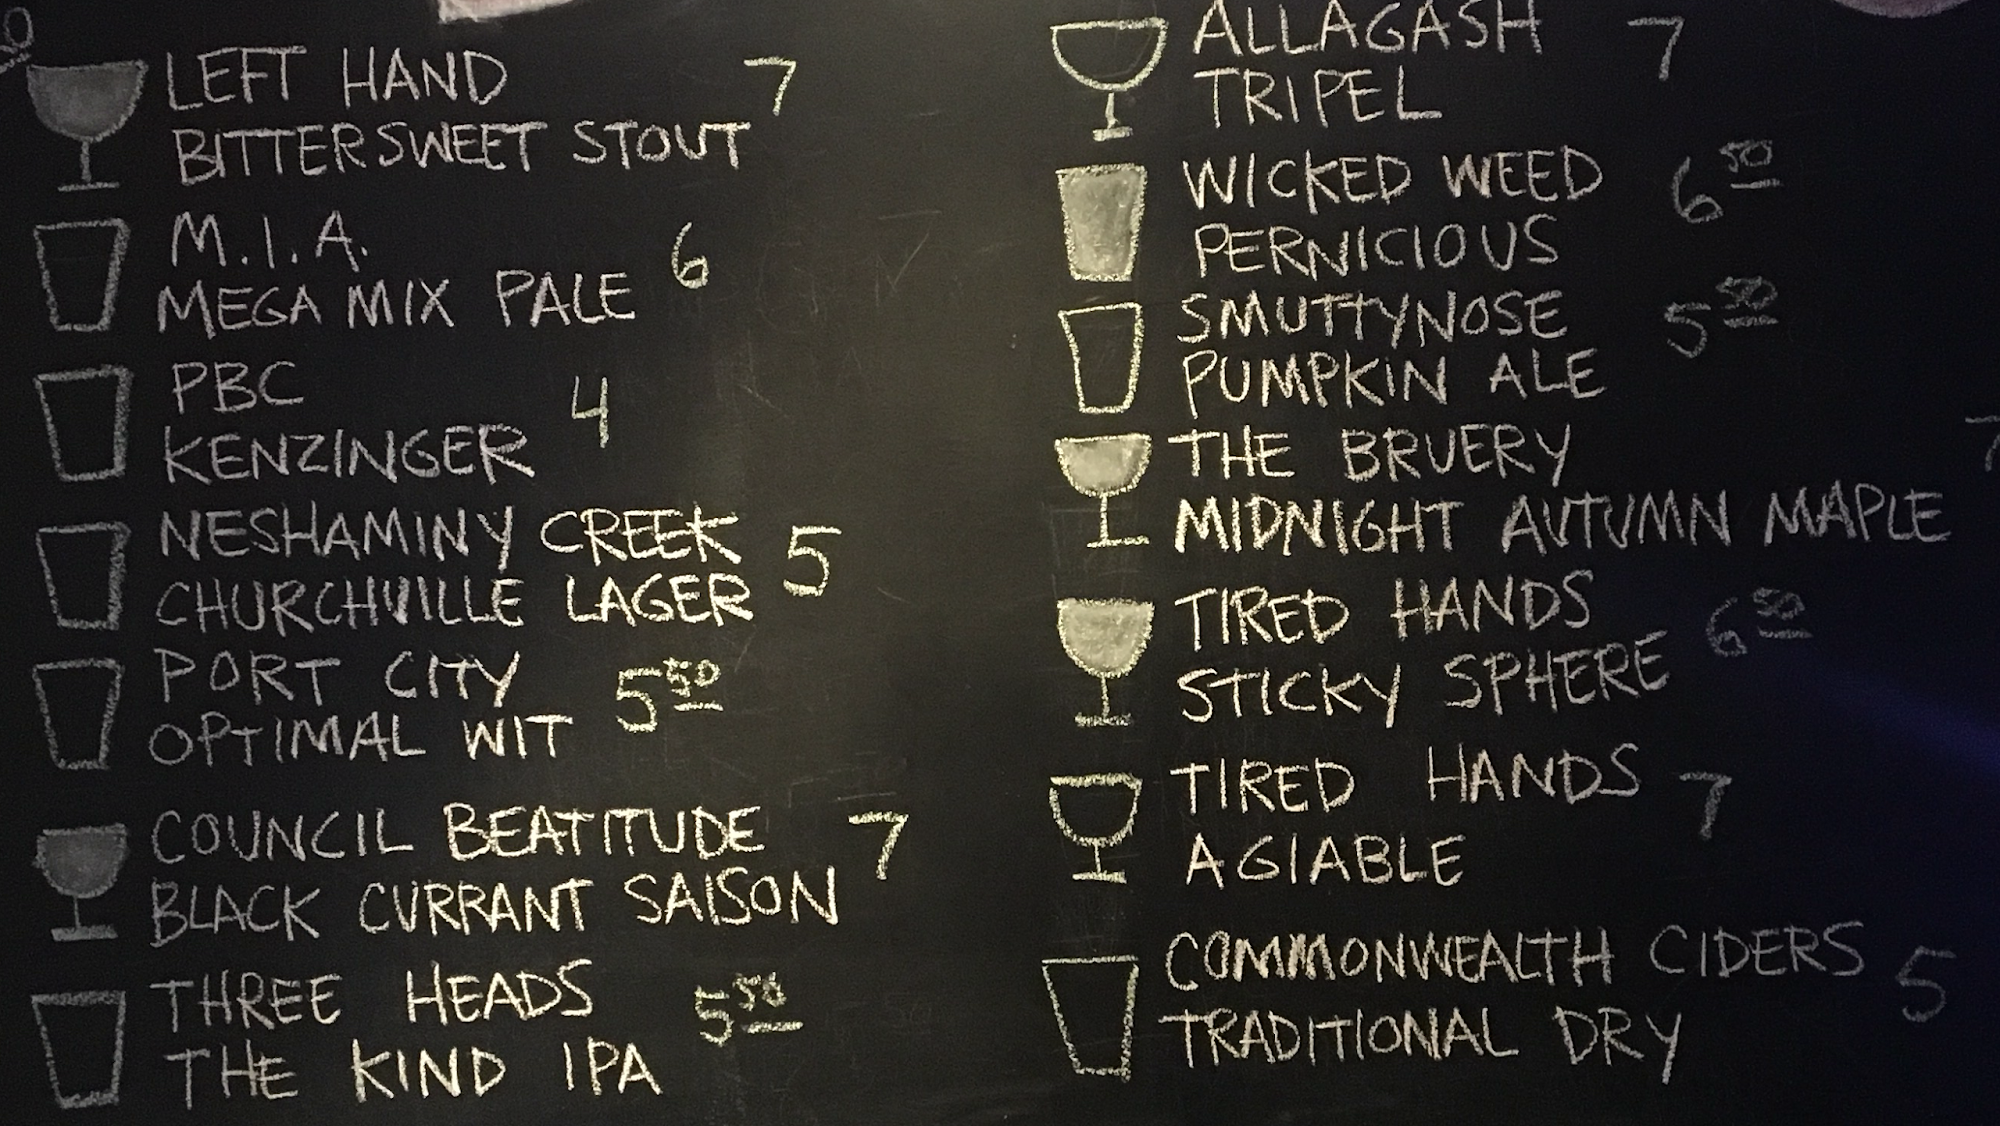 LEFT HAND 7
BITTERSWEET STOUT
M.I.A. 6
MEGA MIX PALE
PBC 4
KENZINGER
NESHAMINY CREEK 5
CHURCHVILLE LAGER
PORT CITY 5 50
OPTIMAL WIT
COUNCIL BEATITUDE 7
BLACK CURRANT SAISON
THREE HEADS 5 50
THE KIND IPA
ALLAGASH 7
TRIPEL
WICKED WEED 6 50
PERNICIOUS
SMUTTYNOSE 5 50
PUMPKIN ALE
THE BRUERY 7
MIDNIGHT AUTUMN MAPLE
TIRED HANDS 6 50
STICKY SPHERE
TIRED HANDS 7
AGIABLE
COMMONWEALTH CIDERS 5
TRADITIONAL DRY